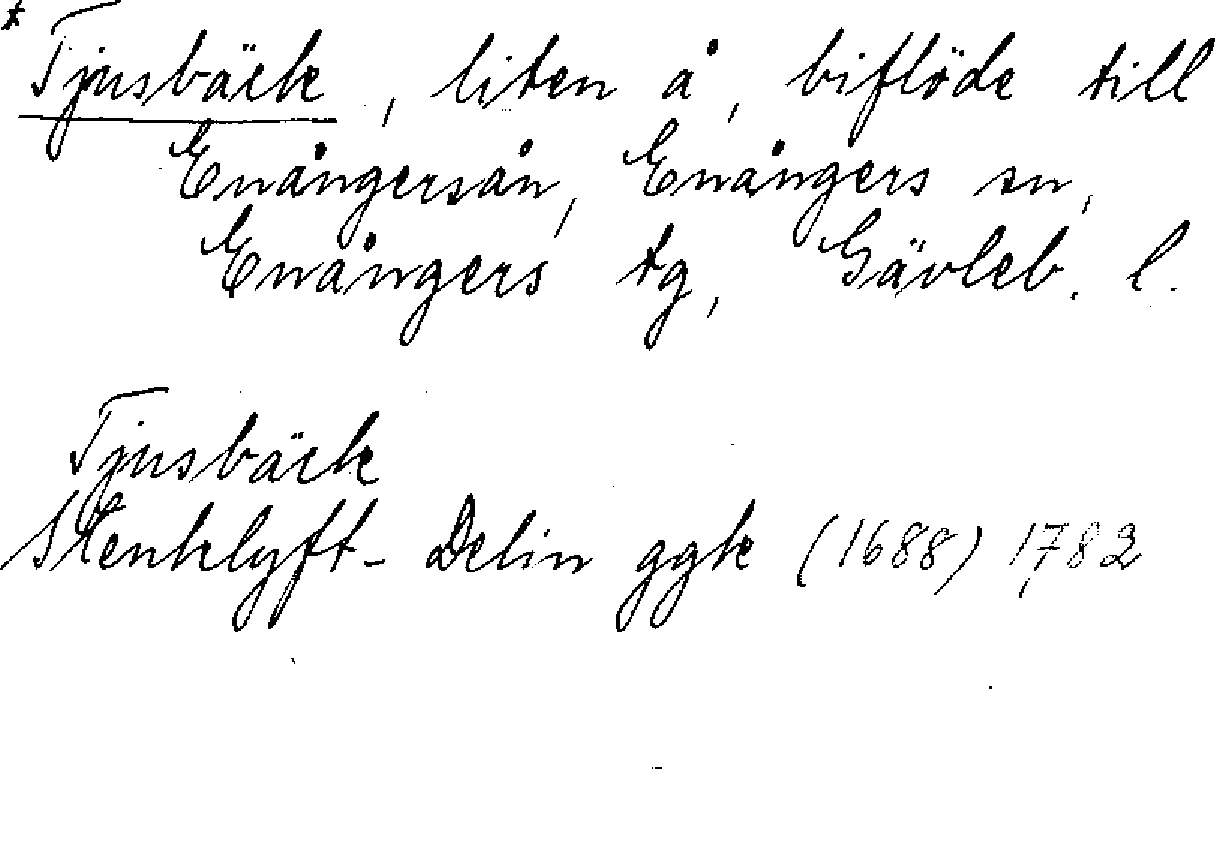 * Tjusbäck, liten å, biflöde till
Enångersån, Enångers sn,
Enångers tg, Gävleb. l.
Tjusbäck
Stenklyft- Delin ggk (1688) 1782